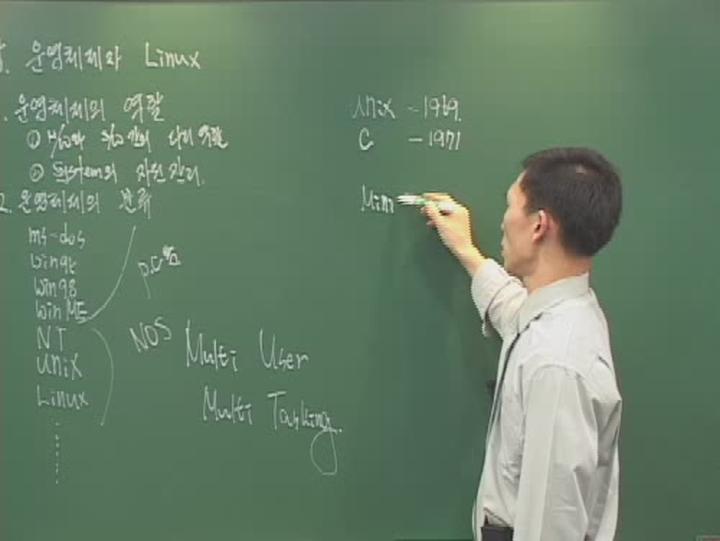 운영체제와 Linux
1. 운영체제의 역할
① H/W와 S/W간의 다리역할
② System의 자원관리.
2. 운영체제의 분류
ms-dos
win95
win98
win ME
NT
UNiX
Linux
P.C용
NOS
Multi User
Multi Tasking.
Unix - 1969.
C - 1971
Mini